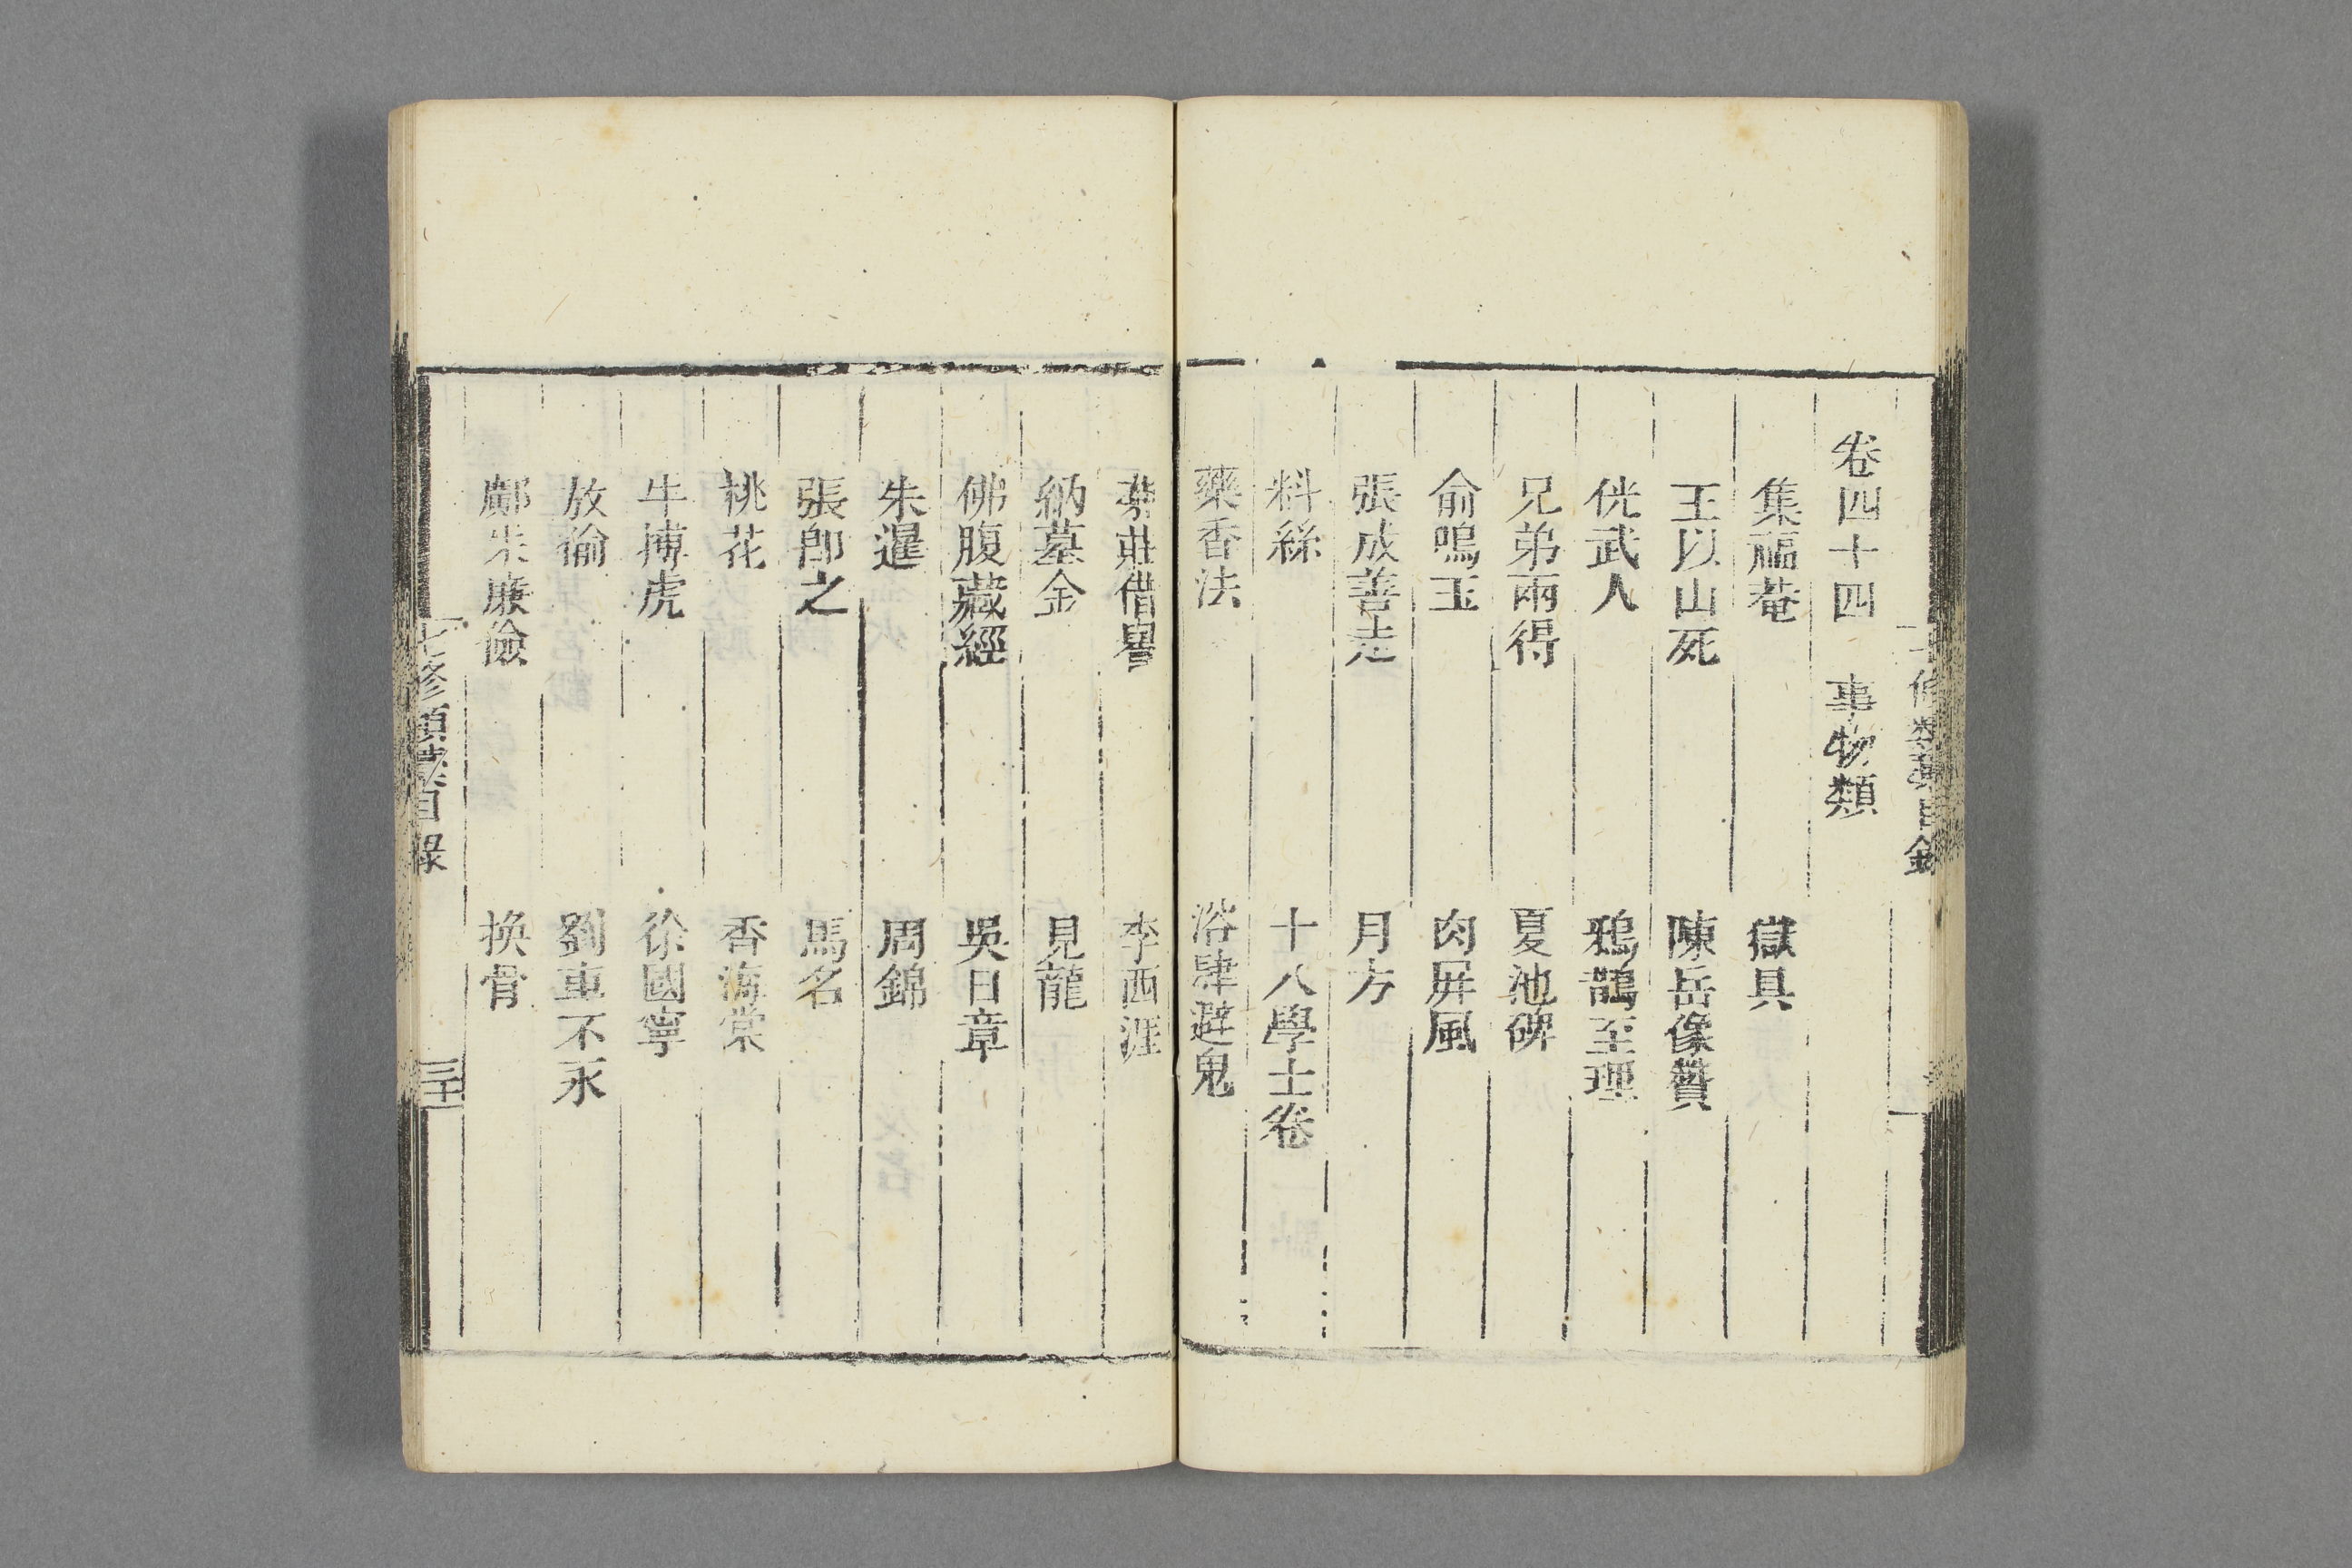 卷四十四　事物類
集福菴　獄具
王以山死　陳岳像贊
侊武人　鴉鵲至理
兄弟兩得　夏池碑
俞鳴玉　肉屏風
張成善走　月方
料絲　十八學士卷
藥香法　浴肆避鬼
莊借譽　李西涯
納墓金　見龍
佛腹藏經　吳日章
朱暹　周錦
張卽之　馬名
桃花　香海棠
牛搏虎　徐國寧
放偷　劉東不永
鄺朱廉儉　換骨
七修類藁目錄　三十